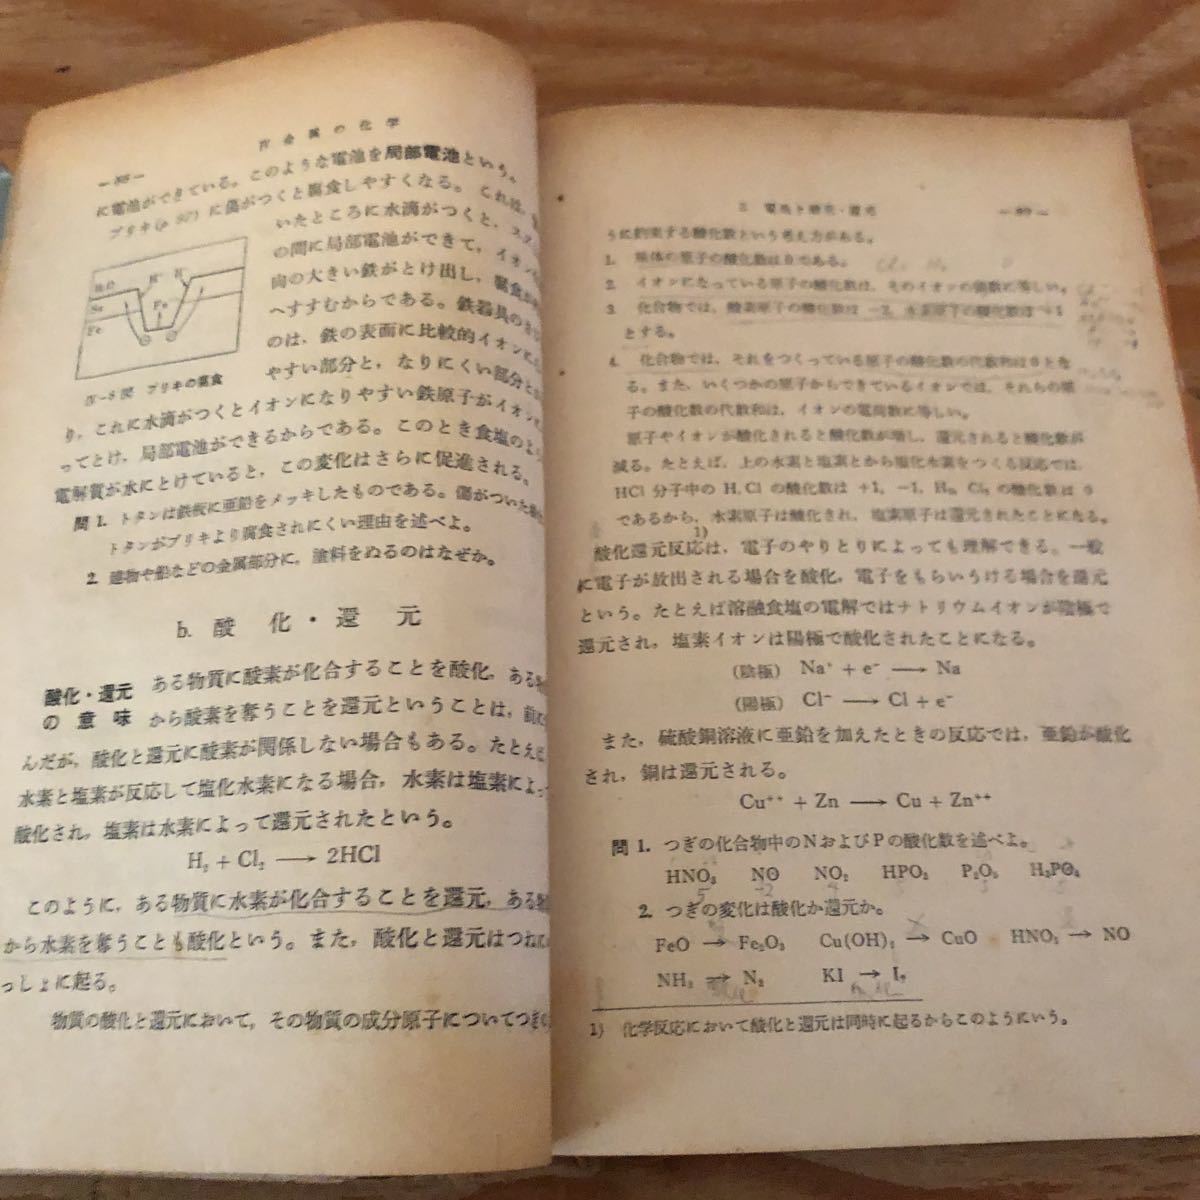 Ⅳ 金属の化学
— 88 —
に電池ができている。このような電池を局部電池という。
ブリキ(p.97)に傷がつくと腐食しやすくなる。これは,
いたところに水滴がつくと,スズ
の間に局部電池ができて,イオン
向の大きい鉄がとけ出し,腐食が
へすすむからである。鉄器具の
のは,鉄の表面に比較的イオンに
やすい部分と,なりにくい部分と
H₂O
Sn
Fe
H⁺
H
Fe
Ⅳ—8図 ブリキの腐食
り,これに水滴がつくとイオンになりやすい鉄原子がイオン
ってとけ,局部電池ができるからである。このとき食塩のよ
電解質が水にとけていると,この変化はさらに促進される。
問1. トタンは鉄板に亜鉛をメッキしたものである。傷がついた
トタンがブリキより腐食されにくい理由を述べよ。
2. 建物や船などの金属部分に,塗料をぬるのはなぜか。
b. 酸化・還元
酸化・還元の意味
ある物質に酸素が化合することを酸化,ある
から酸素を奪うことを還元ということは,前に
んだが,酸化と還元に酸素が関係しない場合もある。たとえば
水素と塩素が反応して塩化水素になる場合,水素は塩素によっ
酸化され,塩素は水素によって還元されたという。
H₂ + Cl₂ ⟶ 2HCl
このように,ある物質に水素が化合することを還元,ある
から水素を奪うことも酸化という。また,酸化と還元はつねに
っしょに起る。
物質の酸化と還元において,その物質の成分原子についてつぎの
2 電池と酸化・還元
— 89 —
うに約束する酸化数という考え方がある。
1. 単体の原子の酸化数は0である。
2. イオンになっている原子の酸化数は,そのイオンの価数に等しい。
3. 化合物では,酸素原子の酸化数は −2,水素原子の酸化数は +1
とする。
4. 化合物では,それをつくっている原子の酸化数の代数和は0とな
る。また,いくつかの原子からできているイオンでは,それらの原
子の酸化数の代数和は,イオンの電荷数に等しい。
原子やイオンが酸化されると酸化数が増し,還元されると酸化数が
減る。たとえば,上の水素と塩素とから塩化水素をつくる反応では,
HCl 分子中の H, Cl の酸化数は +1, −1, H₂, Cl₂ の酸化数は 0
であるから,水素原子は酸化され,塩素原子は還元されたことになる。
酸化還元反応は,¹⁾電子のやりとりによっても理解できる。一般
に電子が放出される場合を酸化,電子をもらいうける場合を還元
という。たとえば溶融食塩の電解ではナトリウムイオンが陰極で
還元され,塩素イオンは陽極で酸化されたことになる。
(陰極) Na⁺ + e⁻ ⟶ Na
(陽極) Cl⁻ ⟶ Cl + e⁻
また,硫酸銅溶液に亜鉛を加えたときの反応では,亜鉛が酸化
され,銅は還元される。
Cu⁺⁺ + Zn ⟶ Cu + Zn⁺⁺
問1. つぎの化合物中のNおよびPの酸化数を述べよ。
HNO₃ NO NO₂ HPO₃ P₂O₃ H₃PO₄
5 -2 4 5 3 5
2. つぎの変化は酸化か還元か。
FeO → Fe₂O₃ Cu(OH)₂ → CuO HNO₃ → NO
NH₃ → N₂ KI → I₂
1) 化学反応において酸化と還元は同時に起るからこのようにいう。